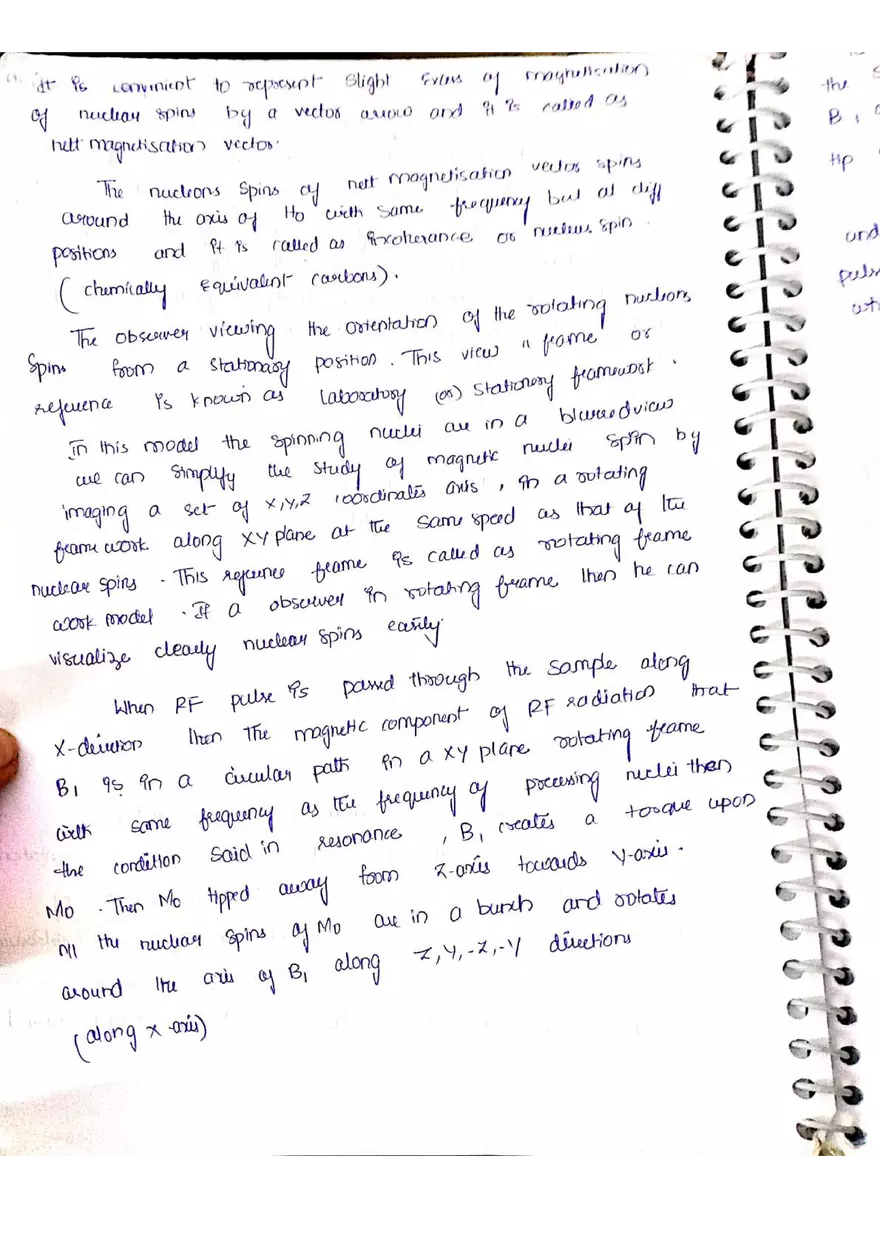 It is convinient to represent slight Exess of magnetisation
of nuclear spins by a vector arrow and it is called as
nett magnetisation vector.
The nucleons spins of nett magnetisation vector spins
around the axis of H0 with same frequency but at diff
positions and it is called as incoherance or nucleus spin.
(chemically Equivalent carbons).
The observer viewing the orientation of the rotating nucleons
spins from a stationary position. This view " frame or
reference is known as Laboratory (or) stationery framework.
In this model the spinning nuclei are in a blurred view
we can simplify the study of magnetic nuclei spin by
imaging a set of X,Y,Z coordinates axis, in a rotating
frame work along XY plane at the same speed as that of the
nuclear spins. This refrence frame is called as rotating frame
work model. If a observer in rotating frame then he can
visualize clearly nuclear spins easily.
When RF pulse is passed through the sample along
X-direction then the magnetic component of RF radiation that
B1 is in a circular path in a XY plane rotating frame
with same frequency as the frequency of precessing nuclei then
the condition said in resonance, B1 creates a torque upon
M0. Then M0 tipped away from Z-axis towards Y-axis.
All the nuclear spins of M0 are in a bunch and rotates
around the axis of B1 along Z,Y,-Z,-Y directions
(along x-axis)
the
B1
tip
und
pulse